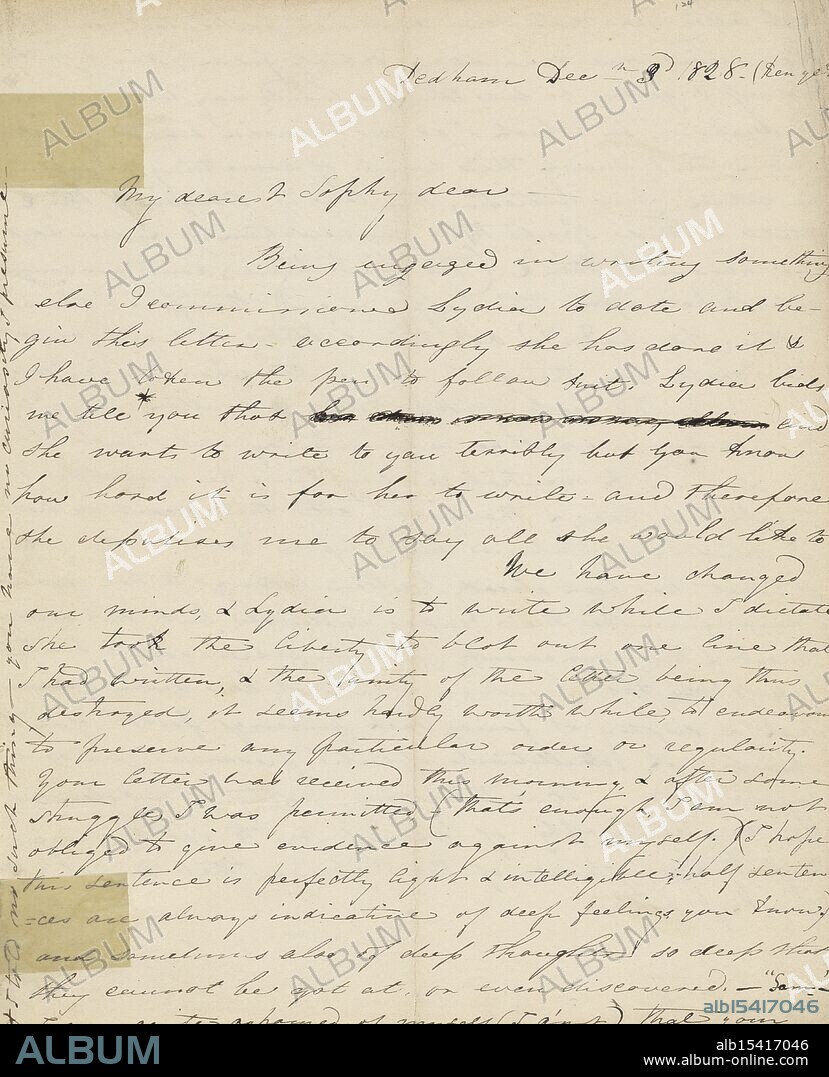 124
Dedham Dec 3d 1828 - (ten
My dearest Sophy dear -
Being engaged in writing something
else I commissioned Lydia to date and be-
gin this letter - accordingly she has done it &
I have taken the pen to follow suit. Lydia bids
me tell * you that and
she wants to write to you terribly but you know
how hard it is for her to write - and therefore
she deputises me to say all she would like to
We have changed
our minds, & Lydia is to write while I dictate
She took the liberty to blot out one line that
I had written, & the unity of the letter being thus
destroyed, it seems hardly worth while, to endeavour
to preserve any particular order or regularity.
Your letter was received this morning, & after some
struggle, I was permitted (that's enough, I am not
obliged to give evidence against myself.) (I hope
this sentence is perfectly light & intelligible, half senten
-ces are always indicative of deep feelings you know,)
and sometimes also of deep thoughts! so deep that
they cannot be got at, or even discovered. - "Some
ashamed of myself (I ain't) that your
no such thing - you have no curiosity I presume -
ALBUM
alb15417046
ALBUM
alb15417046
www.album-online.com